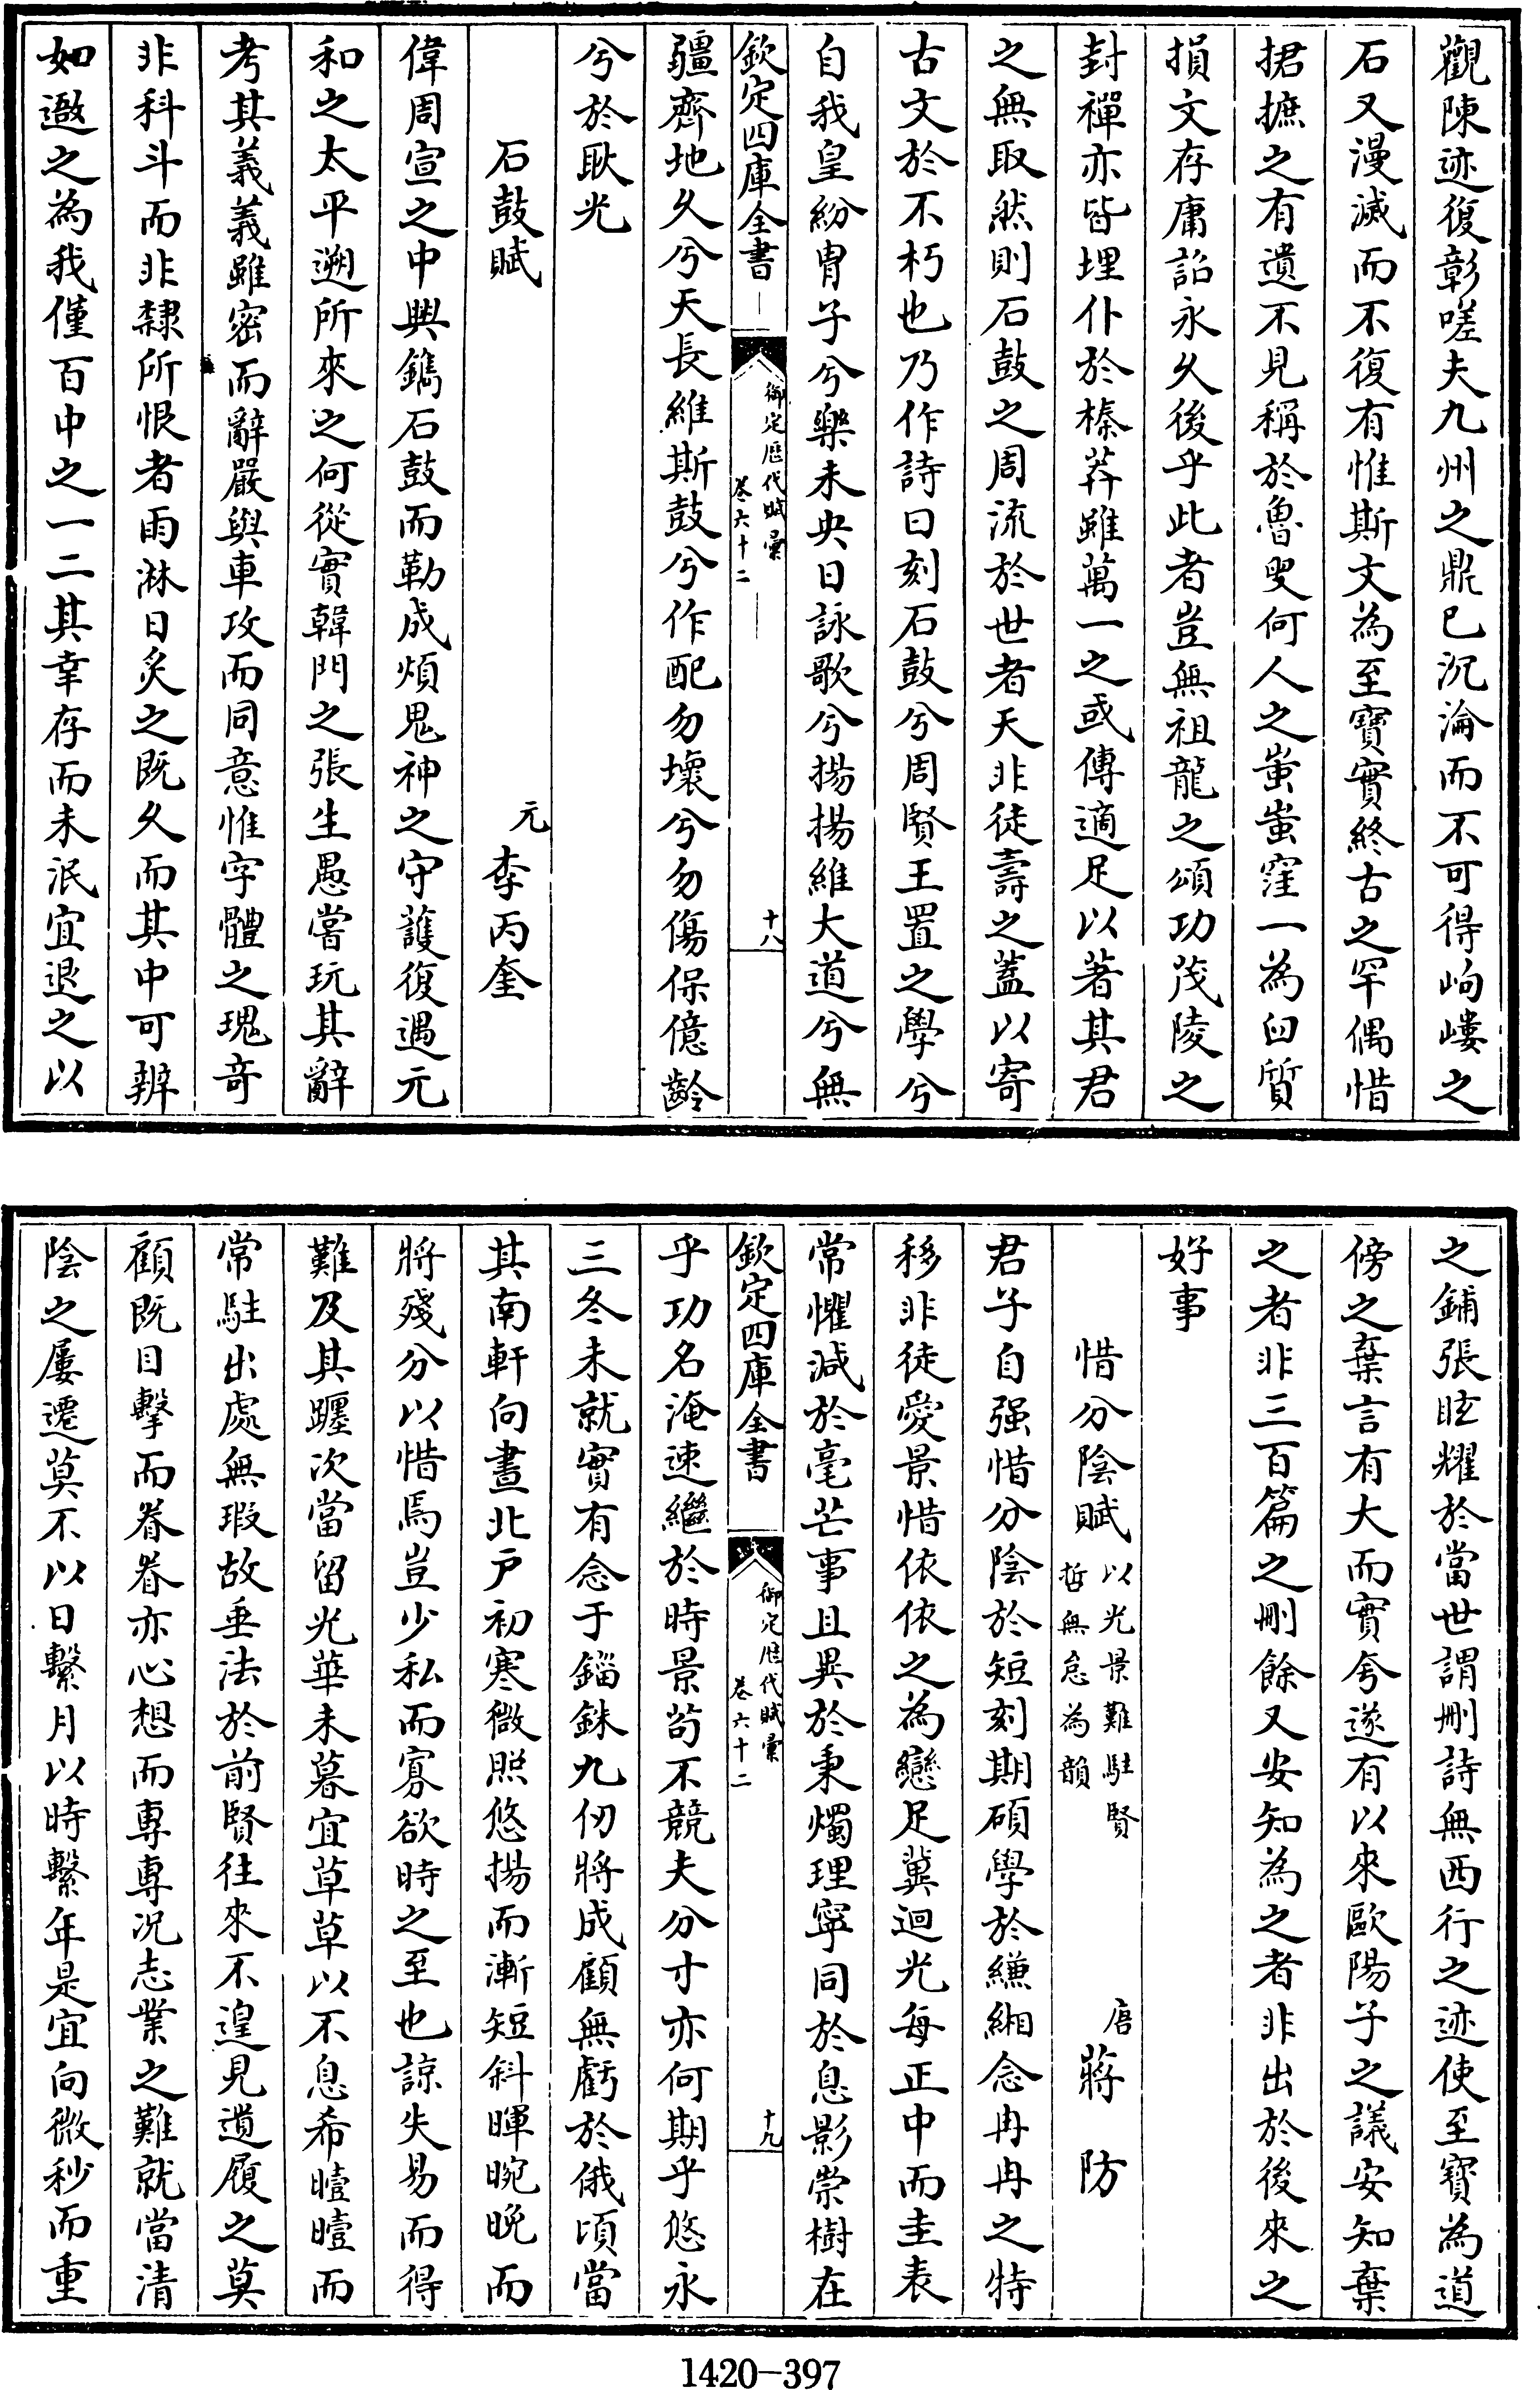 觀陳迹復彰嗟夫九州之鼎已沉淪而不可得岣嶁之
石又漫滅而不復有惟斯文為至寶實終古之罕偶惜
捃摭之有遺不見稱於魯叟何人之蚩蚩窪一為臼質
損文存庸詔永久後乎此者豈無祖龍之頌功茂陵之
封禪亦皆埋仆於榛莽雖萬一之或傳適足以著其君
之無取然則石鼓之周流於世者天非徒壽之蓋以寄
古文於不朽也乃作詩曰刻石鼓兮周賢王置之學兮
自我皇紛冑子兮樂未央日詠歌兮揚揚維大道兮無
欽定四庫全書
御定歷代賦彙
卷六十二
十八
疆齊地久兮天長維斯鼓兮作配勿壞兮勿傷保億齡
兮於耿光
石鼓賦
元
李丙奎
偉周宣之中興鐫石鼓而勒成煩鬼神之守護復遇元
和之太平遡所來之何從實韓門之張生愚嘗玩其辭
考其義義雖密而辭嚴與車攻而同意惟字體之瑰奇
非科斗而非隸所恨者雨淋日炙之既久而其中可辨
如遨之為我僅百中之一二其幸存而未泯宜退之以
之鋪張眩耀於當世謂刪詩無西行之迹使至寶為道
傍之棄言有大而實夸遂有以來歐陽子之議安知棄
之者非三百篇之刪餘又安知為之者非出於後來之
好事
惜分陰賦
以光景難駐賢
哲無怠為韻
唐
蔣防
君子自强惜分陰於短刻期碩學於縑緗念冉冉之特
移非徒愛景惜依依之為戀足冀迴光每正中而圭表
常懼減於毫芒事且異於秉燭理寧同於息影崇樹在
欽定四庫全書
御定歷代賦彙
卷六十二
十九
乎功名淹速繼於時景茍不競夫分寸亦何期乎悠永
三冬未就實有念于錙銖九仞將成顧無虧於俄頃當
其南軒向晝北戶初寒微照悠揚而漸短斜暉晼晚而
將殘分以惜焉豈少私而寡欲時之至也諒失易而得
難及其躔次當留光華未暮宜草草以不息希曀曀而
常駐出處無瑕故垂法於前賢往來不遑見遺履之莫
顧既目擊而眷眷亦心想而專專況志業之難就當清
陰之屢遷莫不以日繫月以時繫年是宜向微秒而重
1420-397